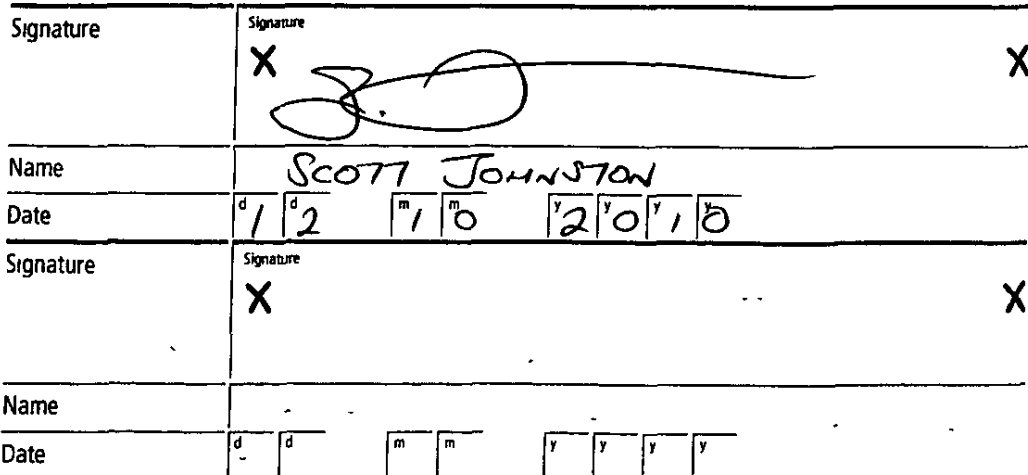 Signature Signature
X X
Name SCOTT JOHNSTON
Date d 1 d 2 m 1 m 0 y 2 y 0 y 1 y 0
Signature Signature
X X
Name
Date d d m m y y y y